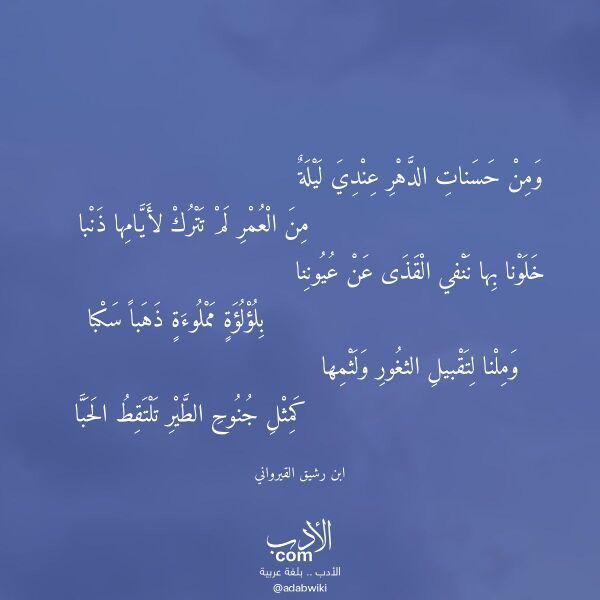 وَمِنْ حَسَناتِ الدَّهْرِ عِنْدِيَ لَيْلَةٌ
مِنَ الْعُمْرِ لَمْ تَتْرُكْ لأَيَّامِها ذَنْبا
خَلَوْنا بِها نَنْفي الْقَذَى عَنْ عُيُونِنا
بِلُؤْلُؤَةٍ مَمْلُوءَةٍ ذَهَباً سَكْبا
وَمِلْنا لِتَقْبيلِ الثغُورِ وَلَثْمِها
كَمِثْلِ جُنُوحِ الطَّيْرِ تَلْتَقِطُ الَحبَّا
ابن رشيق القيرواني
الأدب
com
الأدب .. بلغة عربية
@adabwiki